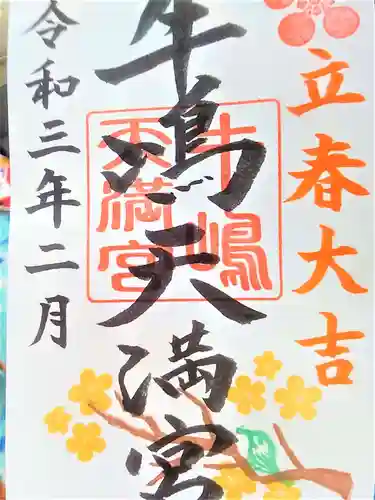 立春大吉
牛嶋天満宮
牛嶋
天満宮
令和三年二月